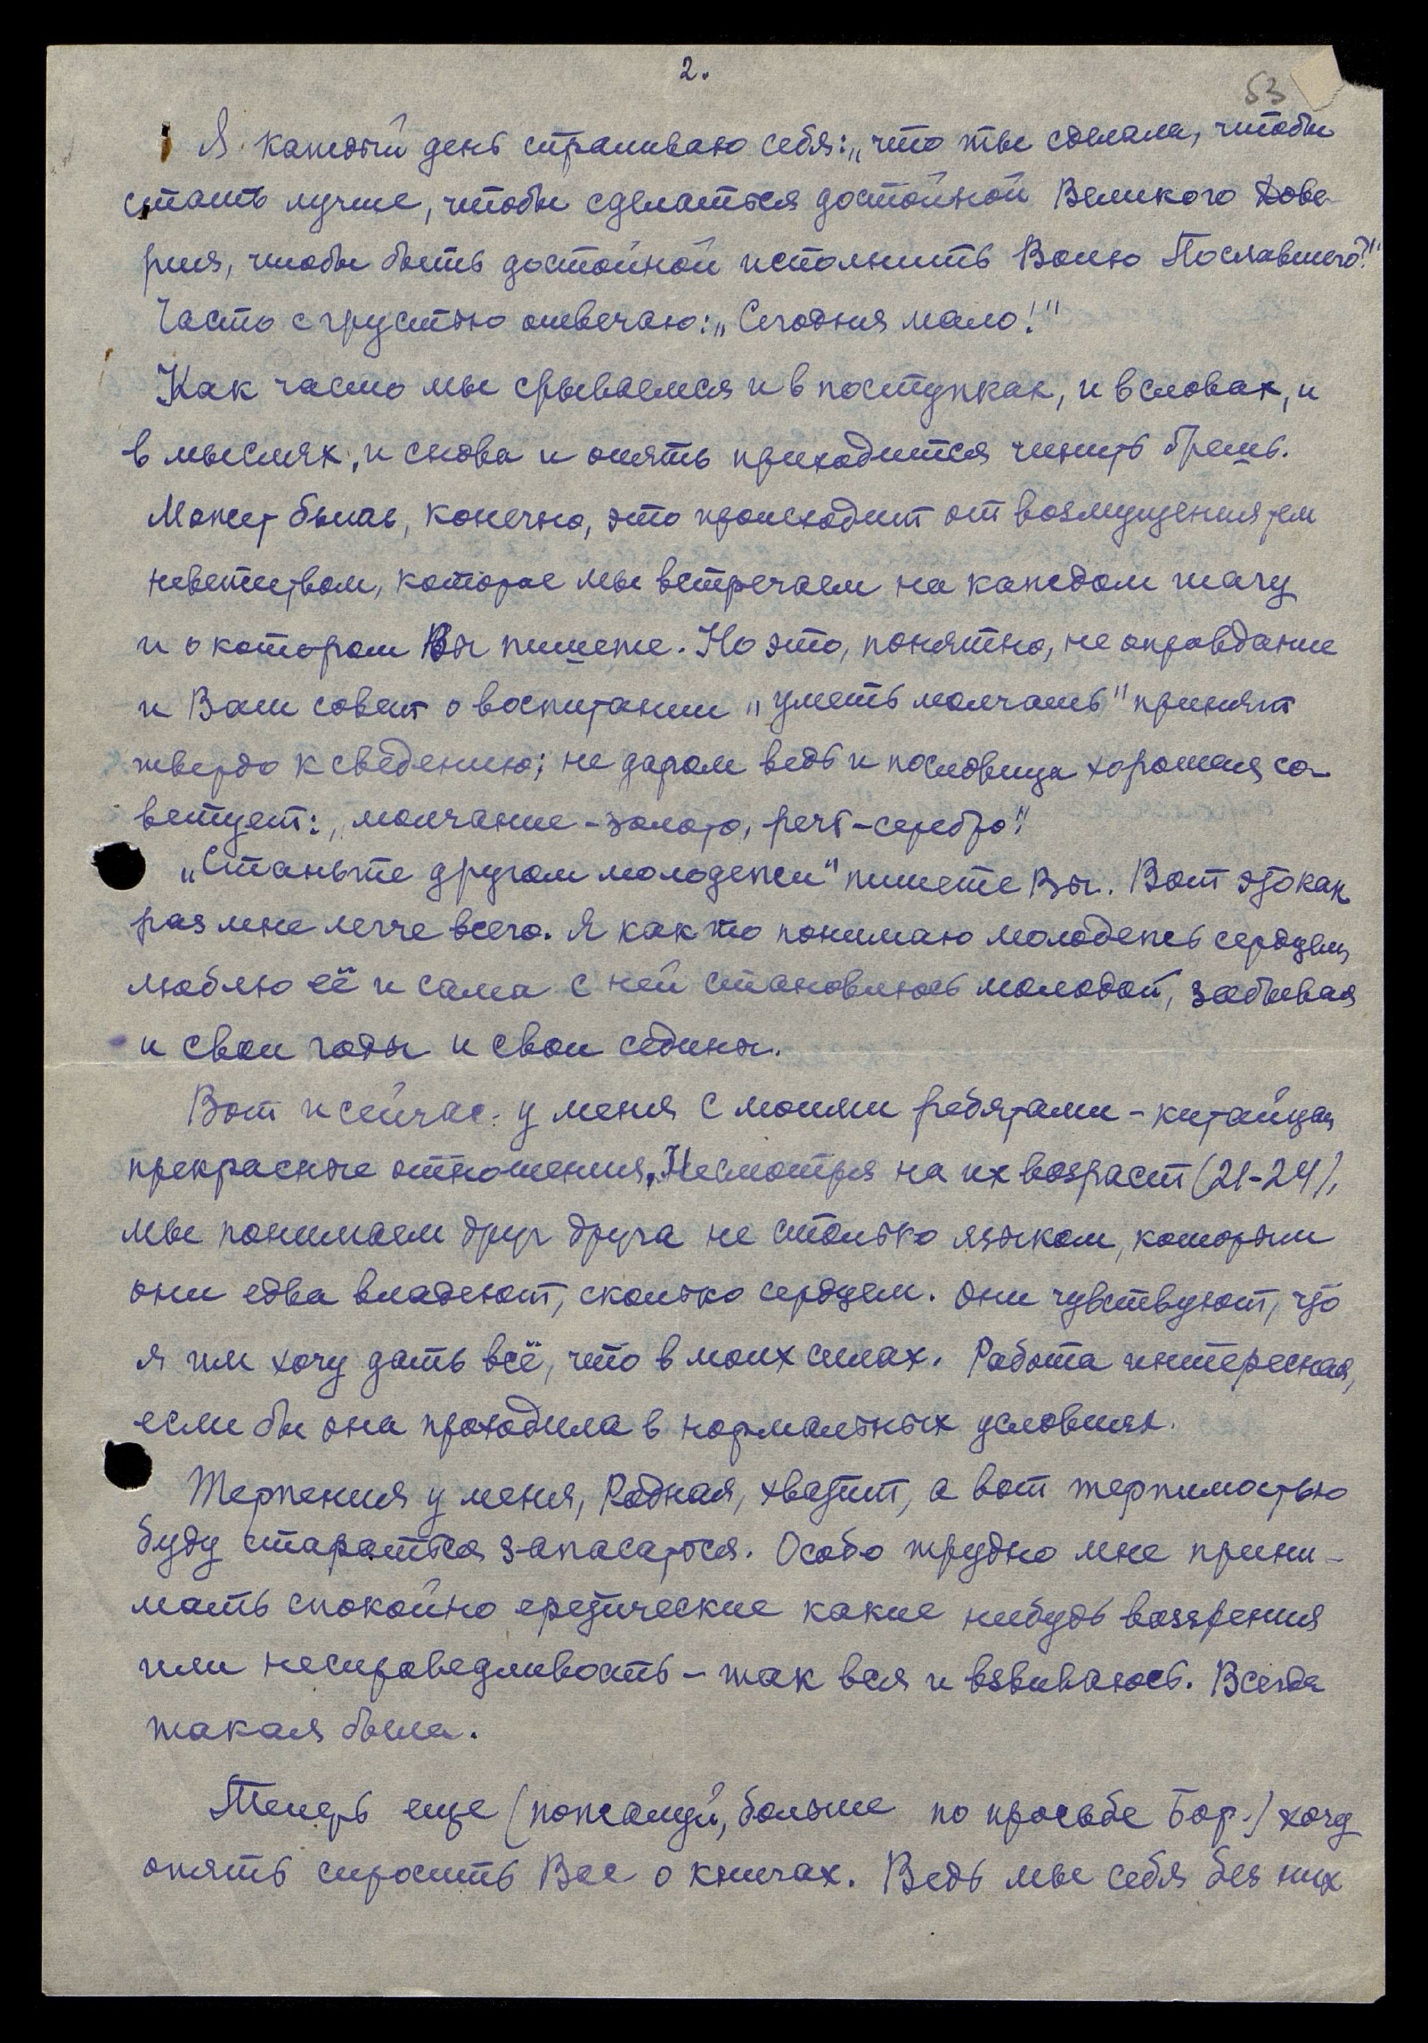 2.
53
Я каждый день спрашиваю себя: „что ты сделала, чтобы
стать лучше, чтобы сделаться достойной Великого Дове-
рия, чтобы быть достойной исполнить Волю Пославшего?"
Часто с грустью отвечаю: „Сегодня мало!"
Как часто мы срываемся и в поступках, и в словах, и
в мыслях, и снова и опять приходится чинить брешь.
Может быть, конечно, это происходит от возмущения тем
невежеством, которое мы встречаем на каждом шагу
и о котором Вы пишете. Но это, понятно, не оправдание
и Ваш совет о воспитании „уметь молчать" принят
твердо к сведению; не даром ведь и пословица хорошая со-
ветует: „молчание - золото, речь - серебро".
„Станьте другом молодежи" пишете Вы. Вот это как
раз мне легче всего. Я как то понимаю молодежь сердцем,
люблю её и сама с ней становлюсь молодой, забывая
и свои годы и свои седины.
Вот и сейчас: у меня с моими ребятами - китайцами
прекрасные отношения. Несмотря на их возраст (21-24),
мы понимаем друг друга не столько языком, которым
они едва владеют, сколько сердцем. Они чувствуют, что
я им хочу дать всё, что в моих силах. Работа интересная,
если бы она проходила в нормальных условиях.
Терпения у меня, Родная, хватит, а вот терпимостью
буду стараться запасаться. Особо трудно мне прини-
мать спокойно еретические какие нибудь воззрения
или несправедливость - так вся и взвиваюсь. Всегда
такая была.
Теперь еще (пожалуй, больше по просьбе Бор.) хочу
опять спросить Вас о книгах. Ведь мы себя без них